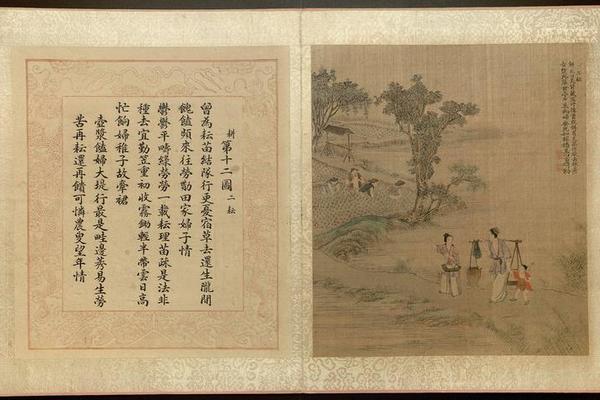 耕第十二圖二耘
曾為耘苗結隊行更憂宿草去還生隴間
餽饁頻來往勞勩田家婦子情
鬱鬱平疇綠勞勞一載耘理苗疎是法非
種去宜勤笠重初收霧鋤輕半帶雲日高
忙餉婦稚子故牽裙
壺漿饁婦大堤行最是畦邊莠易生勞
苦再耘還再饋可憐農叟望年情
二耘